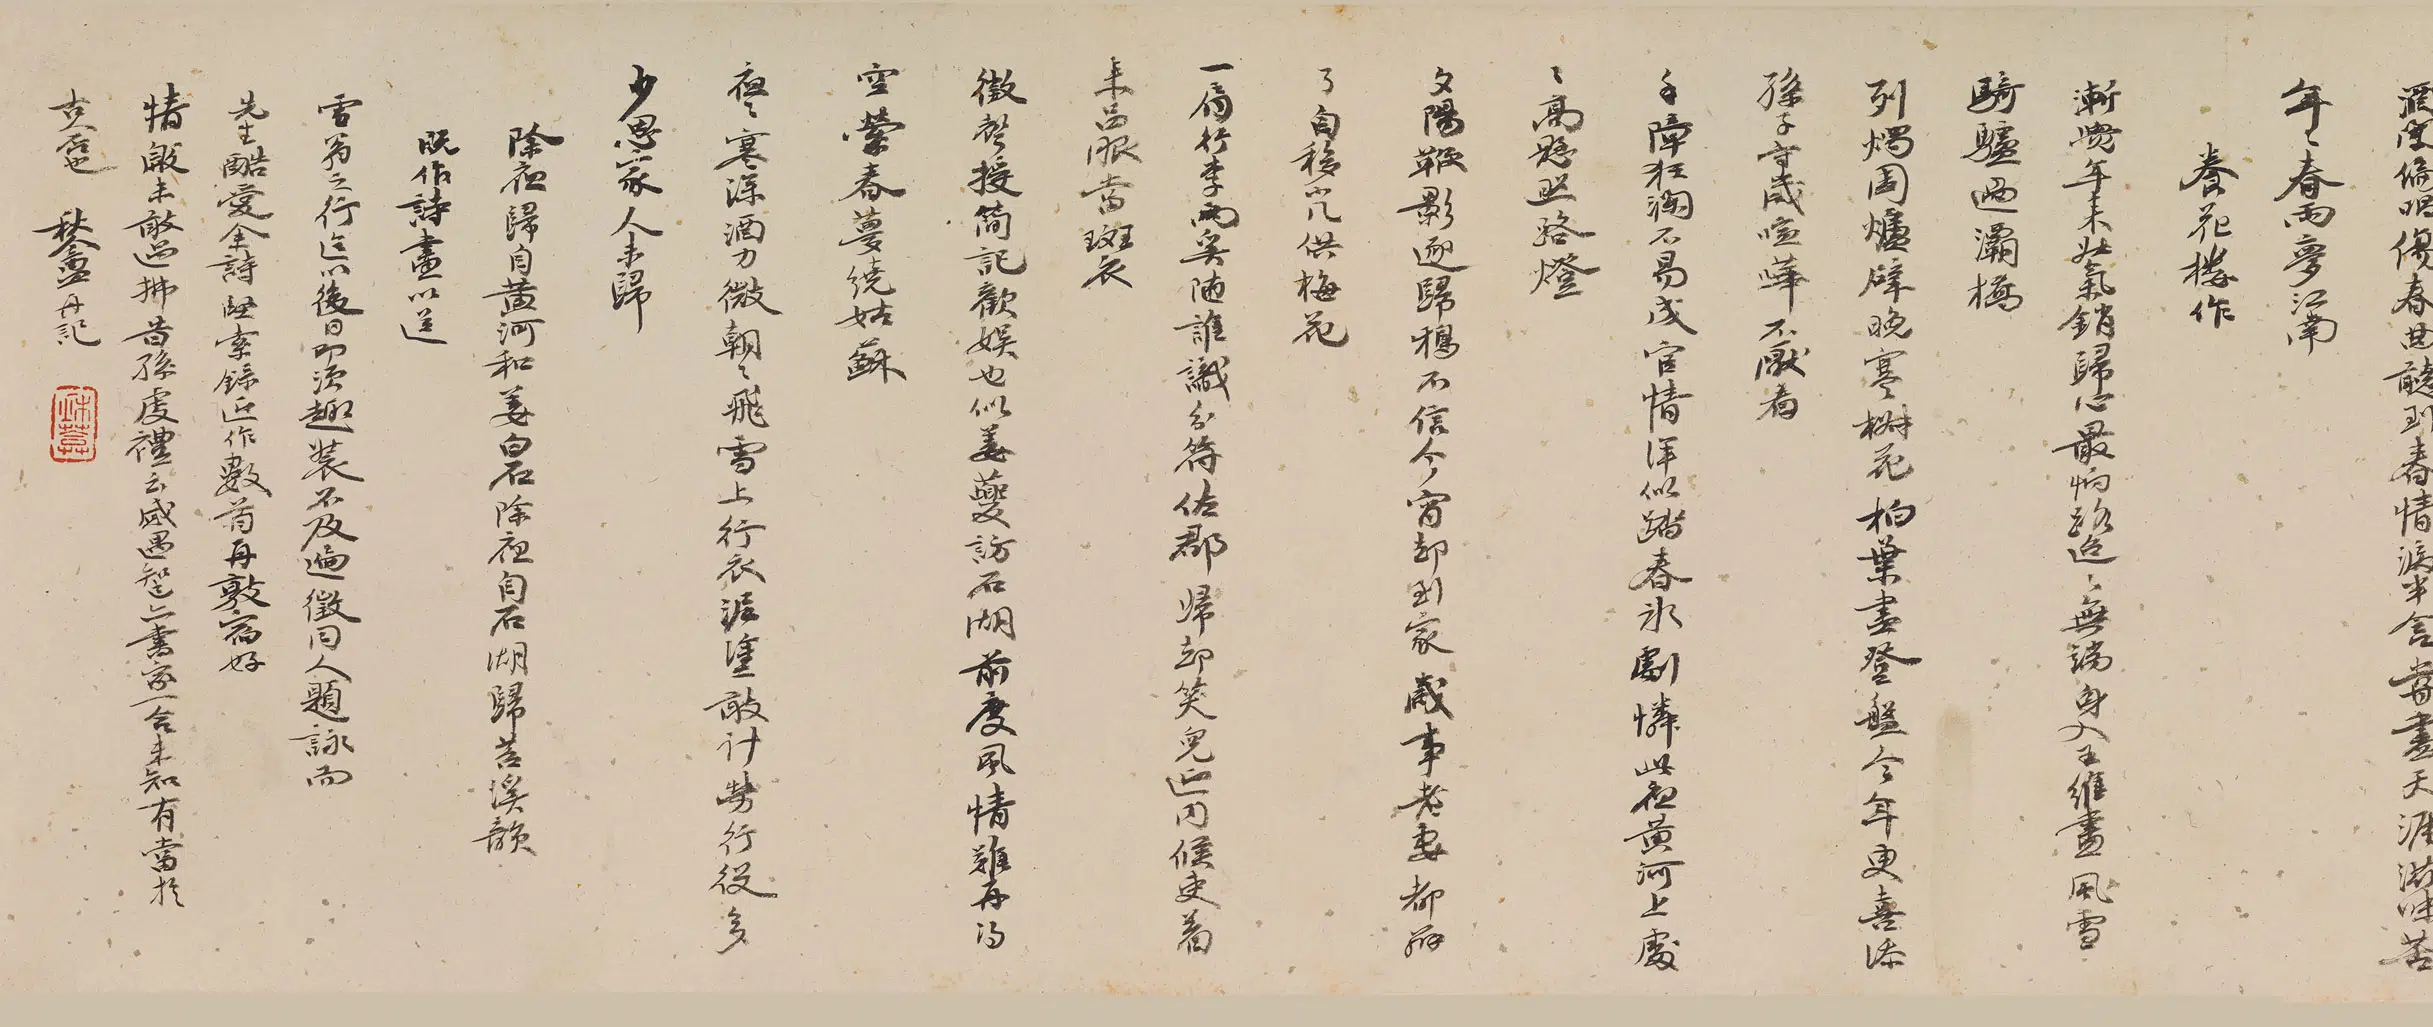 年〻春雨夢江南
養花樓作
漸覺年來壯氣銷歸心最怕路迢〻無端身入王維畫風雪
騎驢過灞橋
列燭圍爐辟晚寒樹花柏葉盡登盤今年更喜添
孫子守歲喧嘩不厭看
手障狂瀾不易成宦情渾似踏春冰劇憐此夜黃河上處
〻高懸照路燈
夕陽鞭影逐歸鴉不信今宵卻到家歲事老妻都辦
了自移小几供梅花
一肩行李兩奚隨誰識分符佐郡歸卻笑兒延門候吏著
來吕服當斑衣
徵聲授簡記歡娛也似姜夔訪石湖前度風情難再得
空縈春夢繞姑蘇
夜〻寒深酒力微朝〻飛雪上行衣泥塗敢計勞行役多
少思家人未歸
除夜歸自黃河和姜白石除夜自石湖歸苕溪韻
既作詩畫以送
雪翁之行迄以後日即須趣裝不及遍徵同人題詠而
先生酷愛余詩堅索錄近作數首再敦宿好
情敢未敢過拂昔孫虔禮云感遇智亡書家一合未知有當於
古人否也 秋盦再記
秋盦